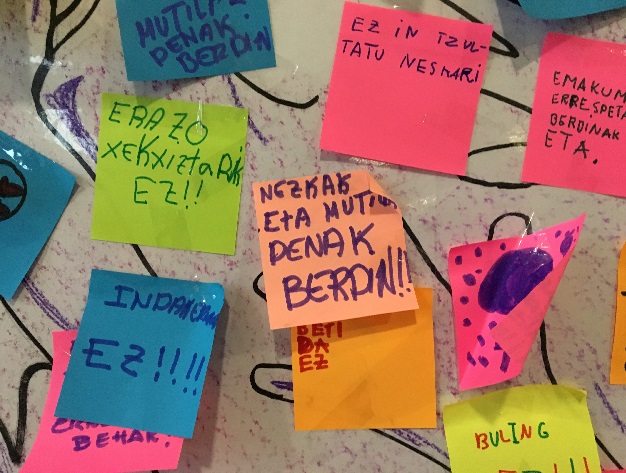 MUTILAK
DENAK
BERDIN
EZ IN TZUL-
TATU NESKARI
EMAKUM
ERRESPETA
BERDINAK
ETA.
ERAZO
XEKXIZTARIK
EZ!!
NEZKAK
ETA MUTILAK
DENAK
BERDIN!!
INDARKERIA
EZ!!!!
BETI
DA
EZ
BEHAK!
BULING